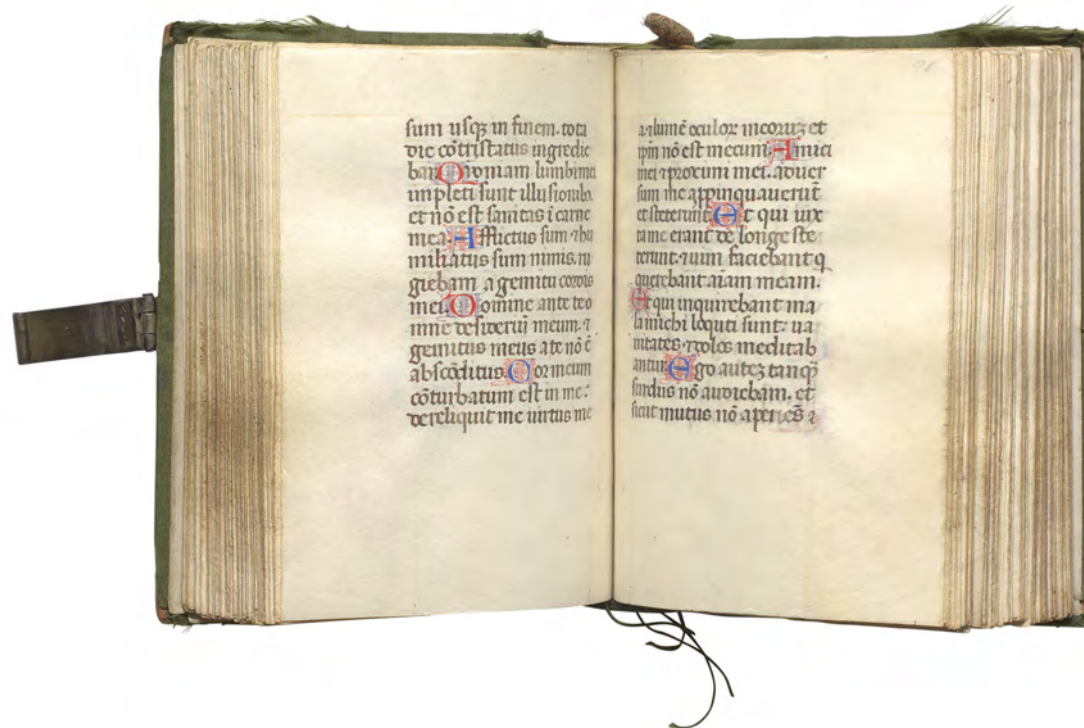 sum usqꝫ in finem. tota
die cōtristatus ingredie
bar. Quoniam lumbi mei
impleti sunt illusionibꝫ
et nō est sanitas ī carne
mea. Afflictus sum ⁊ hu
miliatus sum nimis. ru
giebam a gemitu cordis
mei. Domine ante te o
mne desideriū meum. ⁊
gemitus meus a te nō ē
abscōditus. Cor meum
cōturbatum est in me.
dereliquit me uirtus me
a. ⁊ lumē oculoꝝ meoruꝫ et
ipm̄ nō est mecum. Amici
mei ⁊ proximi mei. aduer
sum me appinquauerūt
et steterunt. Et qui iux
ta me erant de longe ste
terunt. ⁊ uim faciebant q
querebant aīam meam.
Et qui inquirebant ma
la michi loquti sunt. ua
nitates ⁊ dolos meditab
antur. Ego auteꝫ tanqꝫ
surdus nō audiebam. et
sicut mutus nō aperiēs